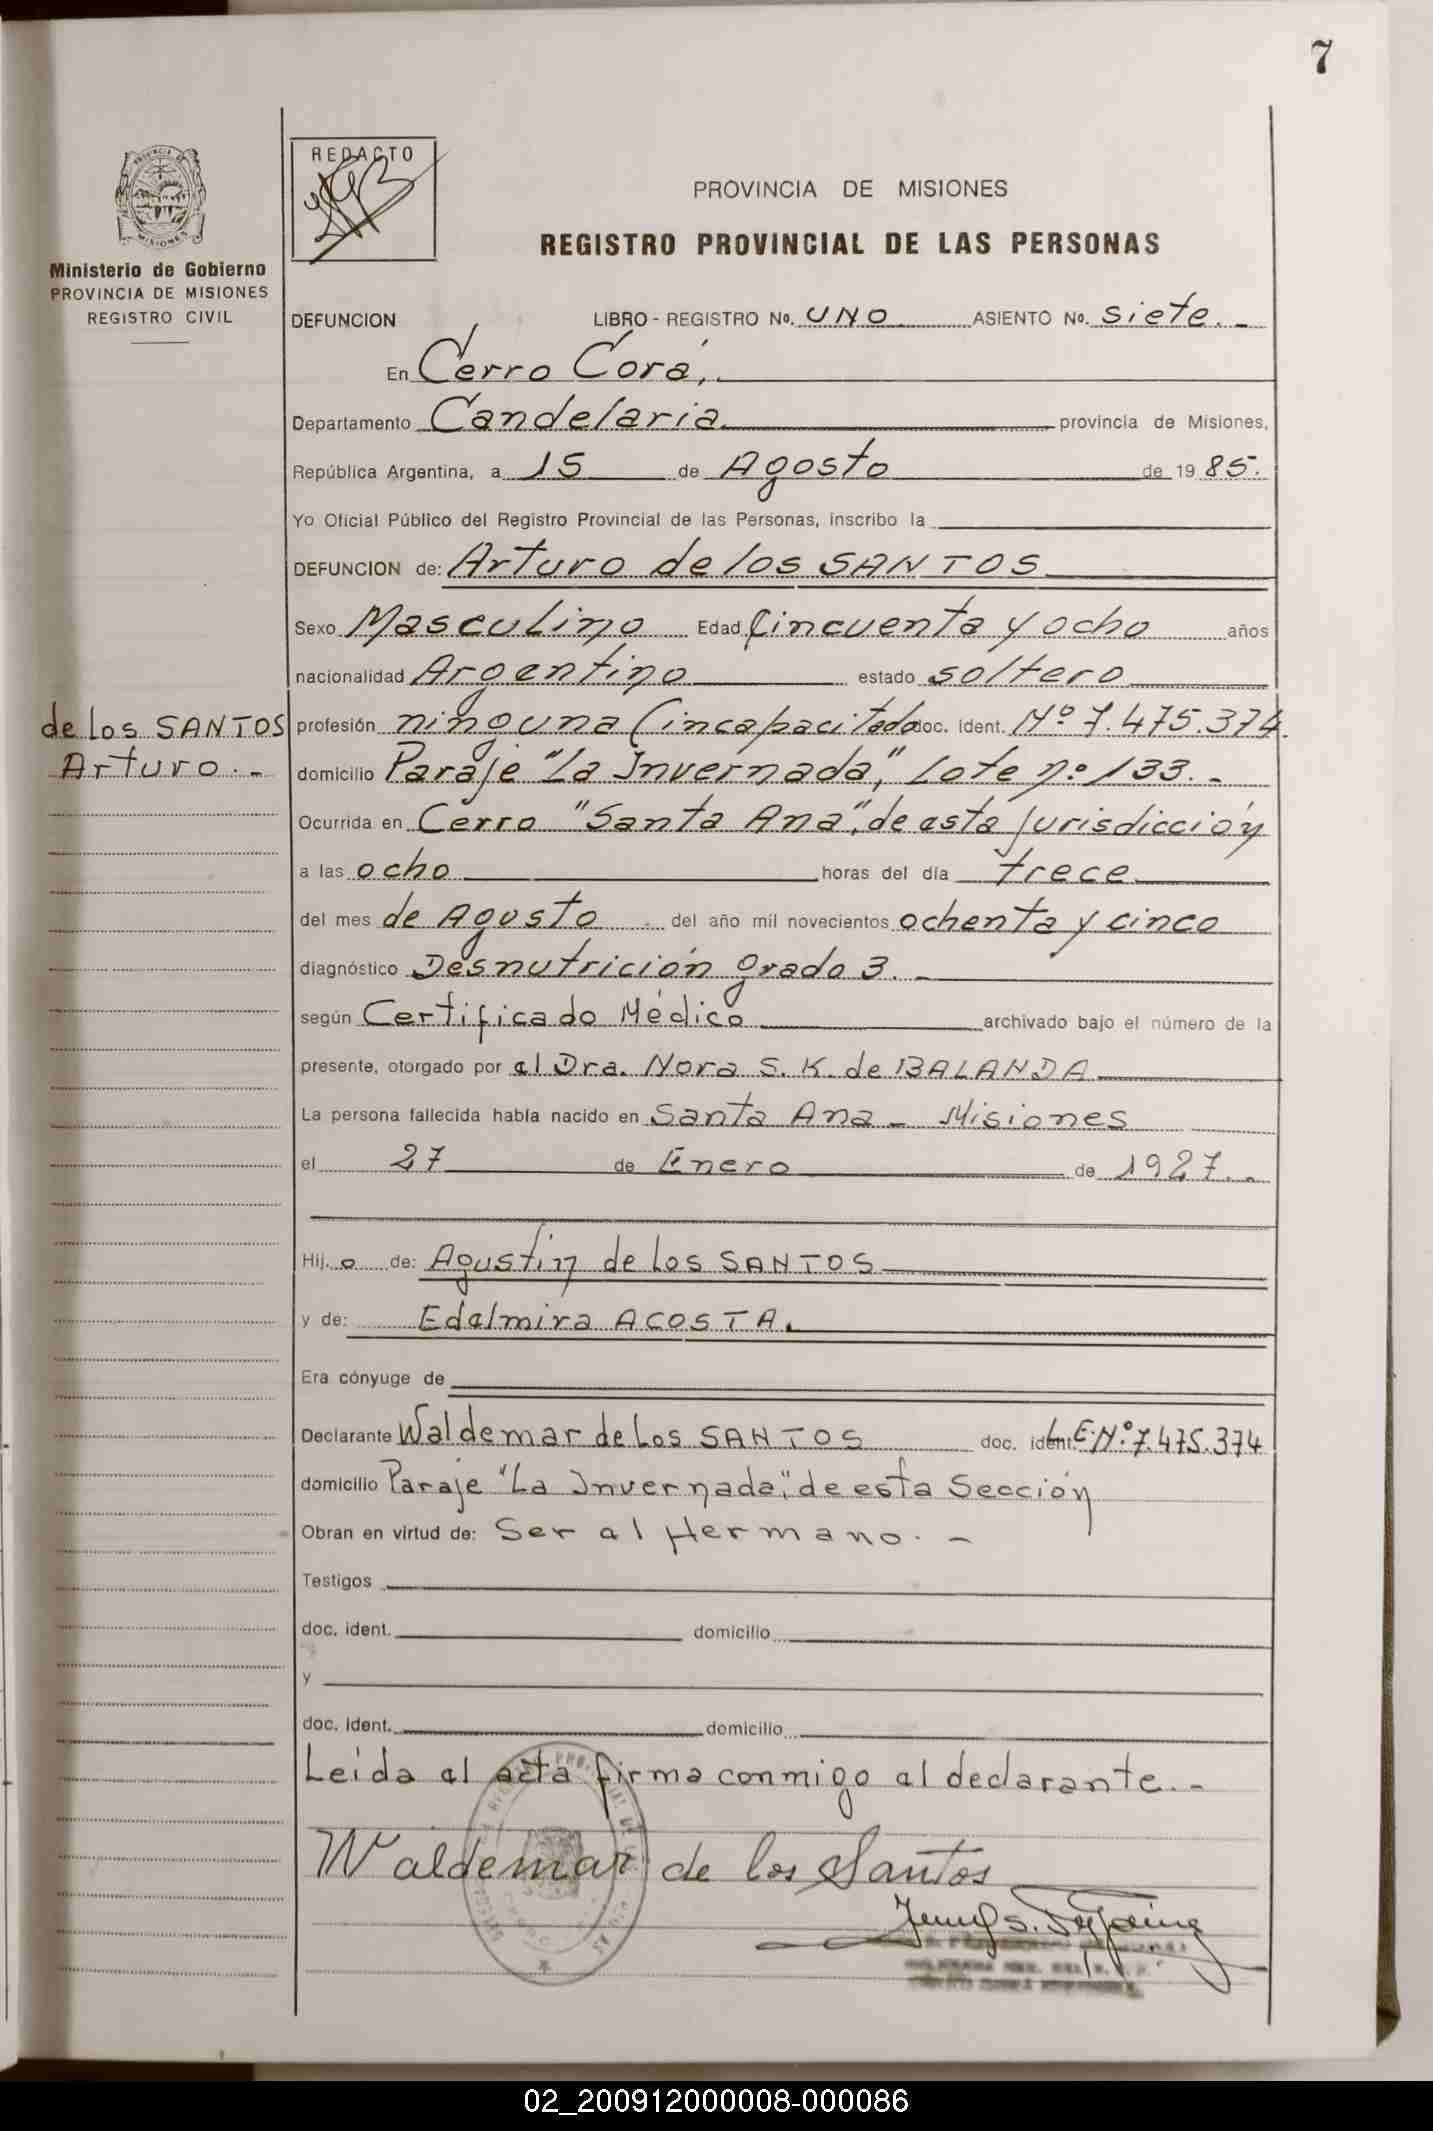 7
REDACTO
PROVINCIA DE MISIONES
REGISTRO PROVINCIAL DE LAS PERSONAS
Ministerio de Gobierno
PROVINCIA DE MISIONES
REGISTRO CIVIL
DEFUNCION LIBRO - REGISTRO No. UNO ASIENTO No. siete. -
En Cerro Corá,
Departamento Candelaria provincia de Misiones,
República Argentina, a 15 de Agosto de 1985.
Yo Oficial Público del Registro Provincial de las Personas, inscribo la
DEFUNCION de: Arturo de los SANTOS
Sexo Masculino Edad Cincuenta y ocho años
nacionalidad Argentino estado soltero
de los SANTOS
Arturo. -
profesión ninguna (incapacitado doc. ident. Nº 7.475.374.
domicilio Paraje "La Invernada", Lote nº 133. -
Ocurrida en Cerro "Santa Ana", de esta Jurisdicción
a las ocho horas del día trece
del mes de Agosto del año mil novecientos ochenta y cinco
diagnóstico Desnutrición grado 3. -
según Certificado Médico archivado bajo el número de la
presente, otorgado por el Dra. Nora S. K. de BALANDA
La persona fallecida había nacido en Santa Ana - Misiones
el 27 de Enero de 1927. -
Hij. o de: Agustin de los SANTOS
y de: Edelmira ACOSTA.
Era cónyuge de
Declarante Waldemar de Los SANTOS doc. ident. L.E. Nº. 7.475.374
domicilio Paraje "La Invernada", de esta Sección
Obran en virtud de: Ser el Hermano. -
Testigos
doc. ident. domicilio
y
doc. ident. domicilio
Leida el acta firma conmigo el declarante. -
Waldemar de los Santos
02_200912000008-000086